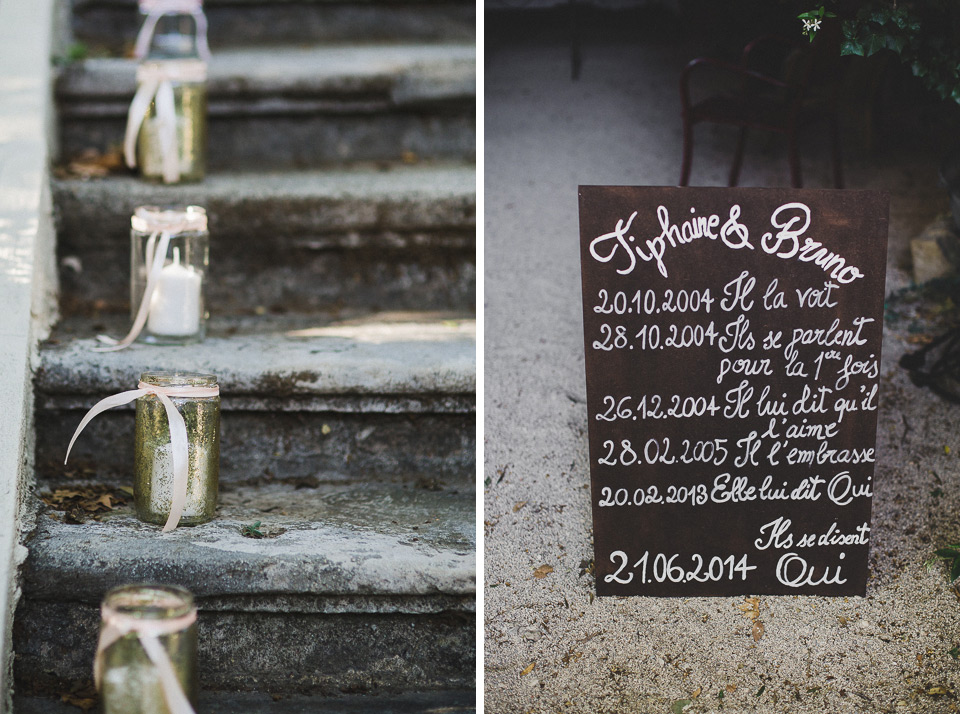 Tiphaine & Bruno
20.10.2004 Il la voit
28.10.2004 Ils se parlent
pour la 1ère fois
26.12.2004 Il lui dit qu'il
l'aime
28.02.2005 Il l'embrasse
20.02.2013 Elle lui dit Oui
Ils se disent
21.06.2014 Oui